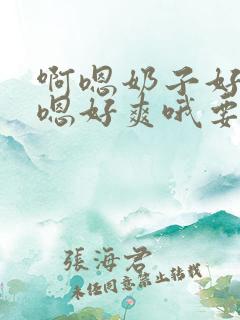 啊嗯奶子好
嗯好爽哦要
張海君
未经同意禁止转载